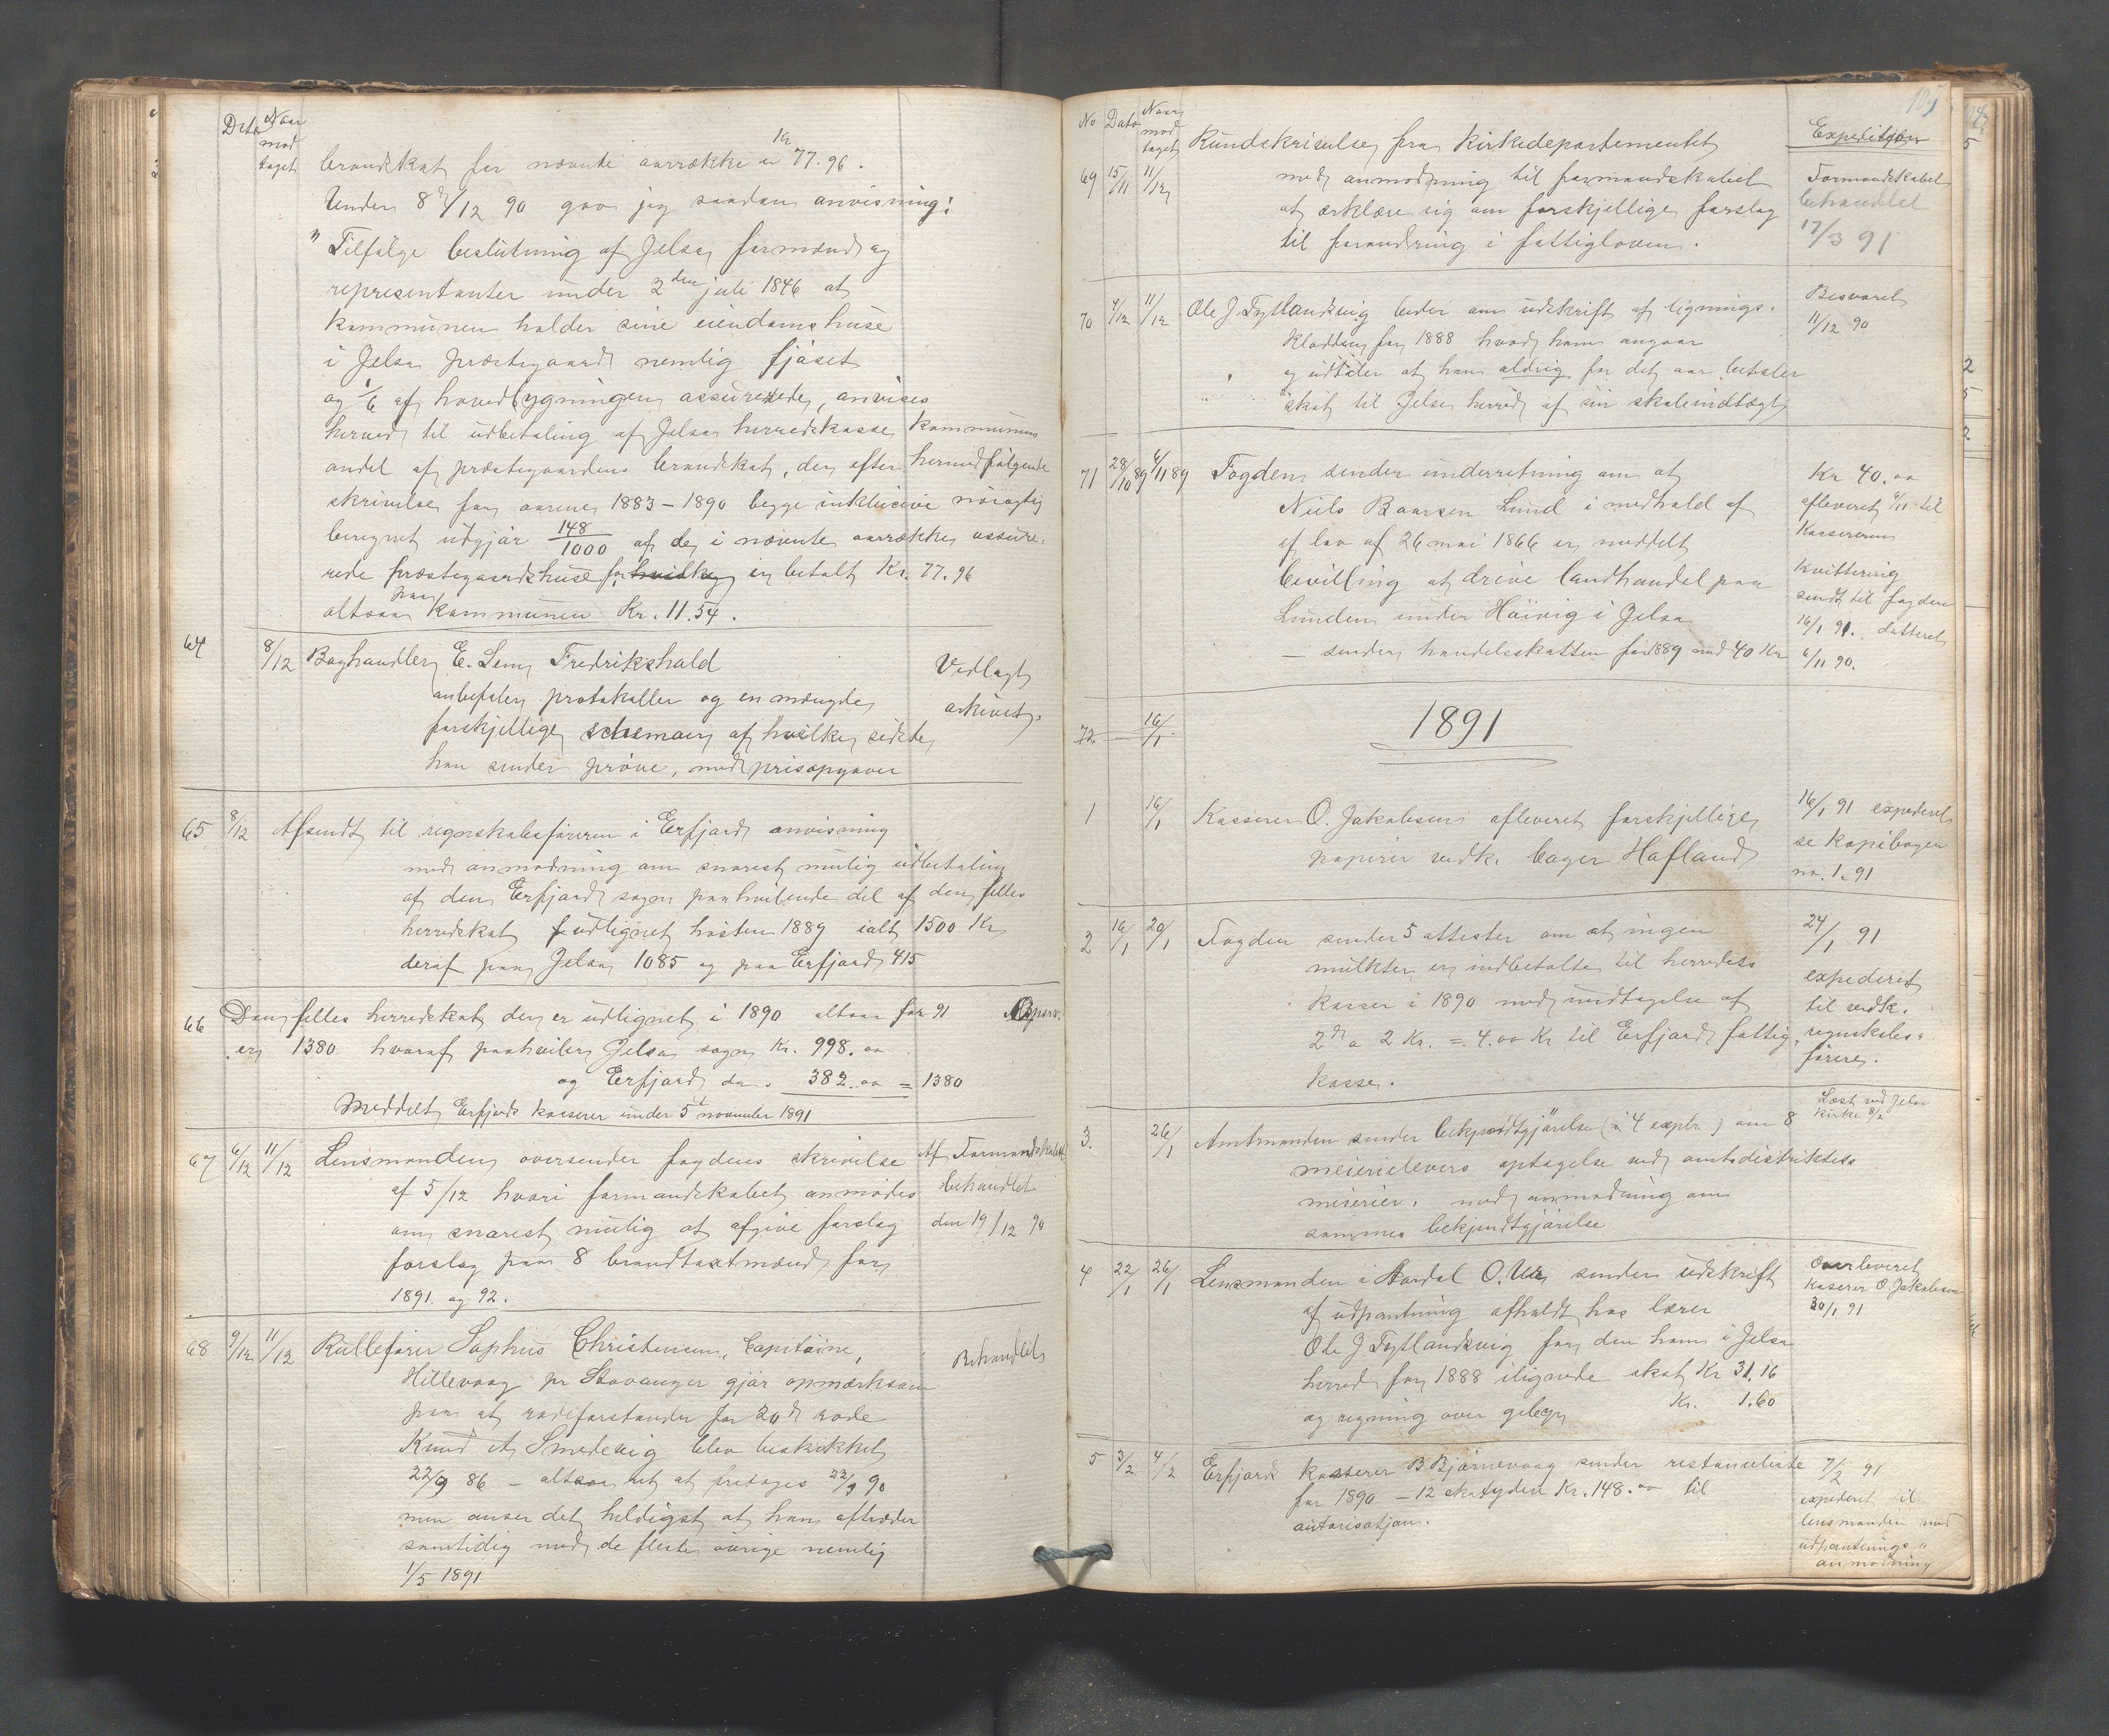 Dato Naar modtaget
brandskat for nævnte aarrække er Kr 77.96.
Under 8 d/12 90 gav jeg saadan anvisning:
"Tilfølge beslutning af Jelsa formænd og
representanter under 2den juli 1846 at
kommunen holder sine eiendomshuse
i Jelsa præstegaard nemlig fjøset
og 1/6 af hovedbygningen assurerede, anvises
herved til udbetaling af Jelsa herredskasse kommunens
andel af præstegaardens brandskat, der efter hermedfølgende
skrivelse for aarene 1883-1890 begge inklusive nøiagtig
beregnet udgjør 148/1000 af de i nævnte aarrække assure-
rede præstegaardshuse for hvilke er betalt Kr. 77.96
altsaa paa kommunen Kr. 11.54.
64 8/12 Boghandler E. Sem Fredrikshald
anbefaler protokoller og en mængde
forskjellige schemaer af hvilke sidste
han sender prøve, med prisopgaver
Vedlagt
arkivet.
65 8/12 Afsendt til regnskabsføreren i Erfjord anvisning
med anmodning om snarest mulig udbetaling
af den Erfjord sogn paahvilende del af den felles
herredskat udlignet høsten 1889 ialt 1500 Kr
deraf paa Jelsa 1085 og paa Erfjord 415
66 Den felles herredskat der er udlignet i 1890 altsaa for 91
er 1380 hvoraf paahviler Jelsa sogn Kr. 998.00
og Erfjord do. 382.00 = 1380
Meddelt Erfjords kasserer under 5t november 1891
67 6/12 11/12 Lensmanden oversender fogdens skrivelse
af 5/12 hvori formandskabet anmodes
om snarest mulig at afgive forslag
forslag paa 8 brandtaxtmænd for
1891 og 92.
Af Formandskabet
behandlet
den 19/12 90
68 9/12 11/12 Rullefører Sophus Christensen, Capitaine,
Hillevaag pr Stavanger gjør opmærksom
paa at rodeforstander for 20d rode
Knud A Smedvig blev beskikket
22/9 86 - altsaa ret at fretages 22/9 90
men anser det heldigst at han aftræder
samtidig med de fleste øvrige nemlig
1/5 1891
Behandlet
105
No Dato Naar modtaget
Expedition
69 15/11 11/12 Rundskrivelse fra Kirkedepartementet
med anmodning til formandskabet
at erklære sig om forskjellige forslag
til forandring i fattigloven.
Formandskabet
behandlet
17/3 91
70 4/12 11/12 Ole J. Tytlandsvig beder om udskrift af lignings-
kladden for 1888 hvad ham angaar
og udtaler at han aldrig for det aar betaler
skat til Jelse herred af sin skoleindtægt
Besvaret
11/12 90
71 28/10 89 4/11 89 Fogden sender underretning om at
Niels Baarsen Lund i medhold af
af lov af 26 mai 1866 er meddelt
bevilling at drive landhandel paa
Lunden under Høivig i Jelsa
- sender handelsskatten for 1889 med 40 Kr
Kr 40.00
afleveret 6/11 til
Kassereren
Kvittering
sendt til fogden
16/1 91. datteret
6/11 90.
72 16/1
1891
1 16/1 Kasserer O. Jakobsen afleveret forskjellige
papirer vedk. bager Hafland
16/1 91 expederet
se kopibogen
no. 1. 91
2 16/1 20/1 Fogden sender 5 attester om at ingen
mulkter er indbetalte til herredets
kasser i 1890 med undtagelse af
2 a 2 Kr. = 4.00 Kr til Erfjord fattig-
kasse.
24/1 91
expederet
til vedk.
regnskabs-
førere.
3. 26/1 Amtmanden sender bekjendtgjørelse (i 4 explr.) om 8
meierielevers optagelse ved amtsdistriktets
meierier. med anmodning om
sammes bekjendtgjørelse
Læst ved Jelsa
kirke 8/2
4 22/1 26/1 Lensmanden i Aardal O. Vik sender udskrift
af udpantning afholdt hos lærer
Ole J Tytlandsvig for den ham i Jelsa
herred for 1888 ilignede skat Kr 31.16
og regning over gebyr Kr. 1.60
Overleveret
kaserer O. Jakobsen
30/1 91
5 3/2 4/2 Erfjords kasserer B Bjørnevaag sender restanceliste
for 1890 - 12 skatydere Kr. 148.00 til
autorisatjon.
7/2 91
expederet til
lensmanden med
udpantnings-
anmodning